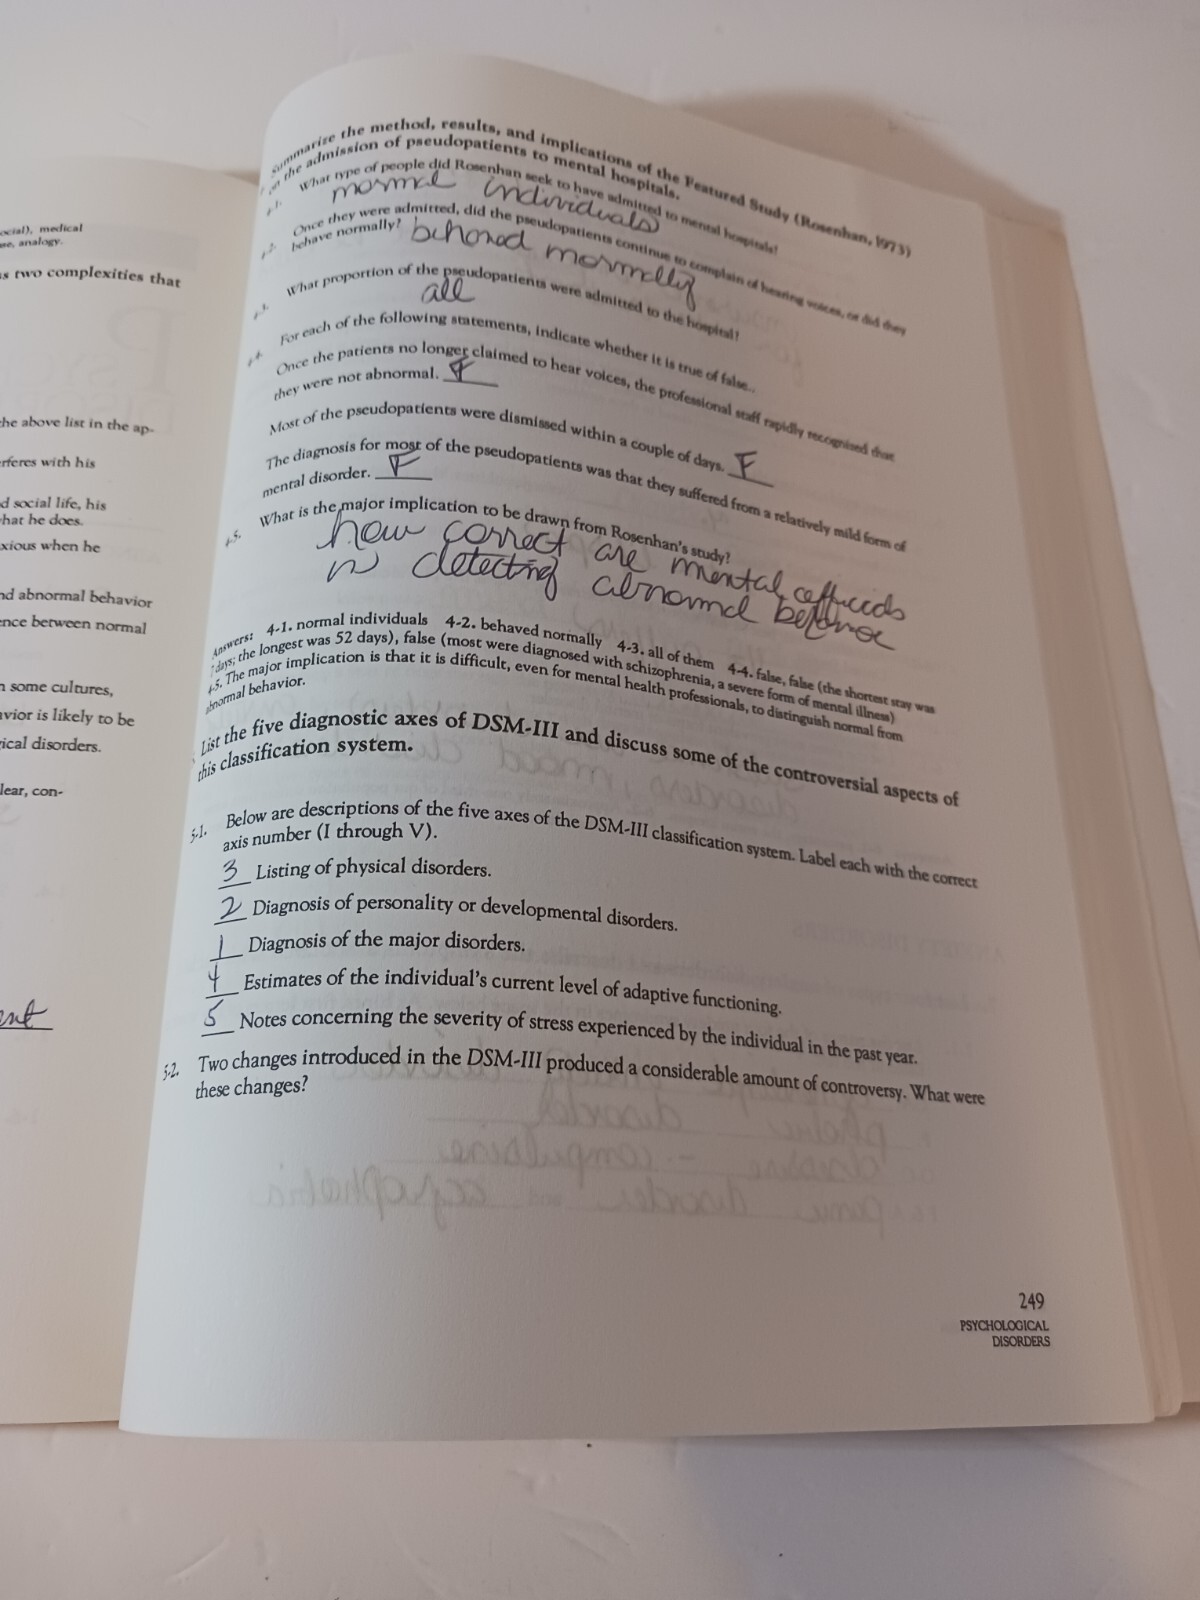 ocial), medical
se, analogy.
s two complexities that
he above list in the ap-
rferes with his
d social life, his
hat he does.
xious when he
nd abnormal behavior
ence between normal
n some cultures,
avior is likely to be
gical disorders.
lear, con-
ent
Summarize the method, results, and implications of the Featured Study (Rosenhan, 1973)
on the admission of pseudopatients to mental hospitals.
4-1. What type of people did Rosenhan seek to have admitted to mental hospitals?
normal individuals
4-2. Once they were admitted, did the pseudopatients continue to complain of hearing voices, or did they
behave normally? behaved normally
4-3. What proportion of the pseudopatients were admitted to the hospital?
all
4-4. For each of the following statements, indicate whether it is true of false..
Once the patients no longer claimed to hear voices, the professional staff rapidly recognized that
they were not abnormal. F
Most of the pseudopatients were dismissed within a couple of days. F
The diagnosis for most of the pseudopatients was that they suffered from a relatively mild form of
mental disorder. F
4-5. What is the major implication to be drawn from Rosenhan's study?
how correct are mental
in detecting abnormal
Answers: 4-1. normal individuals 4-2. behaved normally 4-3. all of them 4-4. false, false (the shortest stay was
7 days; the longest was 52 days), false (most were diagnosed with schizophrenia, a severe form of mental illness)
4-5. The major implication is that it is difficult, even for mental health professionals, to distinguish normal from
abnormal behavior.
List the five diagnostic axes of DSM-III and discuss some of the controversial aspects of
this classification system.
5-1. Below are descriptions of the five axes of the DSM-III classification system. Label each with the correct
axis number (I through V).
3 Listing of physical disorders.
2 Diagnosis of personality or developmental disorders.
1 Diagnosis of the major disorders.
4 Estimates of the individual's current level of adaptive functioning.
5 Notes concerning the severity of stress experienced by the individual in the past year.
5-2. Two changes introduced in the DSM-III produced a considerable amount of controversy. What were
these changes?
249
PSYCHOLOGICAL
DISORDERS